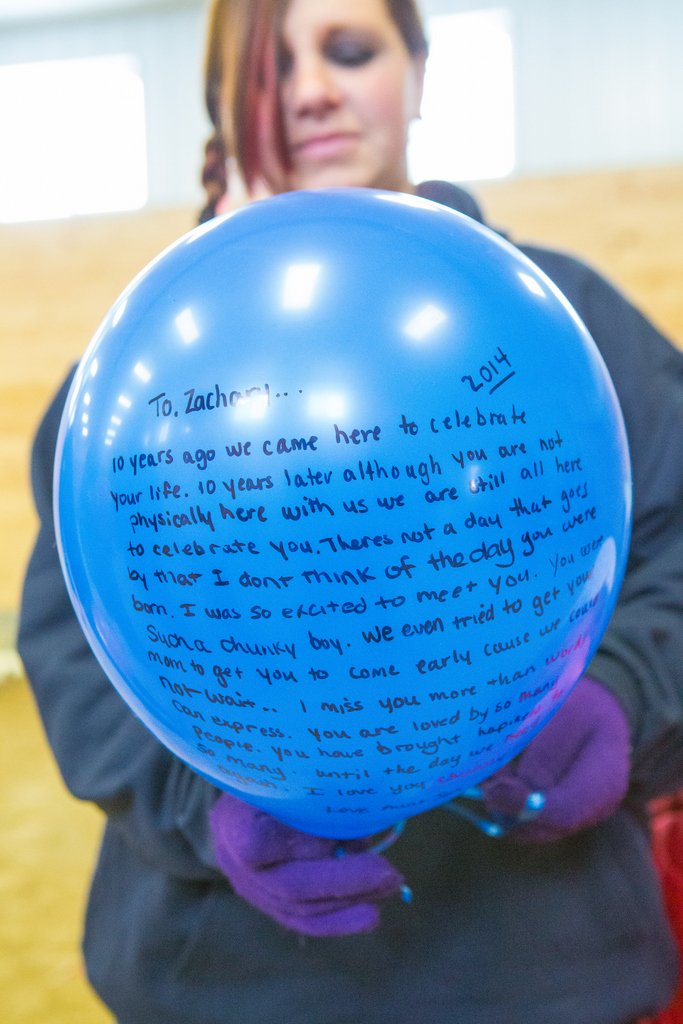 To, Zachary...
2014
10 years ago we came here to celebrate
your life. 10 years later although you are not
physically here with us we are still all here
to celebrate you. Theres not a day that goes
by that I dont think of the day you were
born. I was so excited to meet you. You were
Such a chunky boy. We even tried to get your
mom to get you to come early cause we could
not wait.. I miss you more than words
can express. you are loved by so many
people. you have brought
so many. until the day we
again. I love you
Love